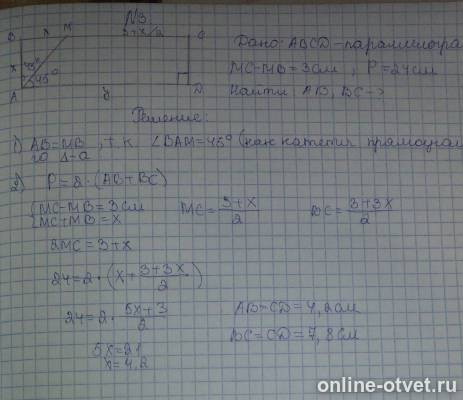 №3
B x M 3+x/2 C
x 45° 45°
A y D
Дано: ABCD-параллелогра
MC-MB=3см, P=24см
Найти: AB, BC->
Решение:
1) AB=MB, т.к ∠BAM=45° (как катеты прямоугол
го Δ-а
2) P=2·(AB+BC)
{MC-MB=3см
{MC+MB=x
MC=3+x/2
BC=3+3x/2
2MC=3+x
24=2·(x+3+3x/2)
24=2·5x+3/2
5x=21
x=4,2
AB=CD=4,2см
BC=CD=7,8см
online-otvet.ru